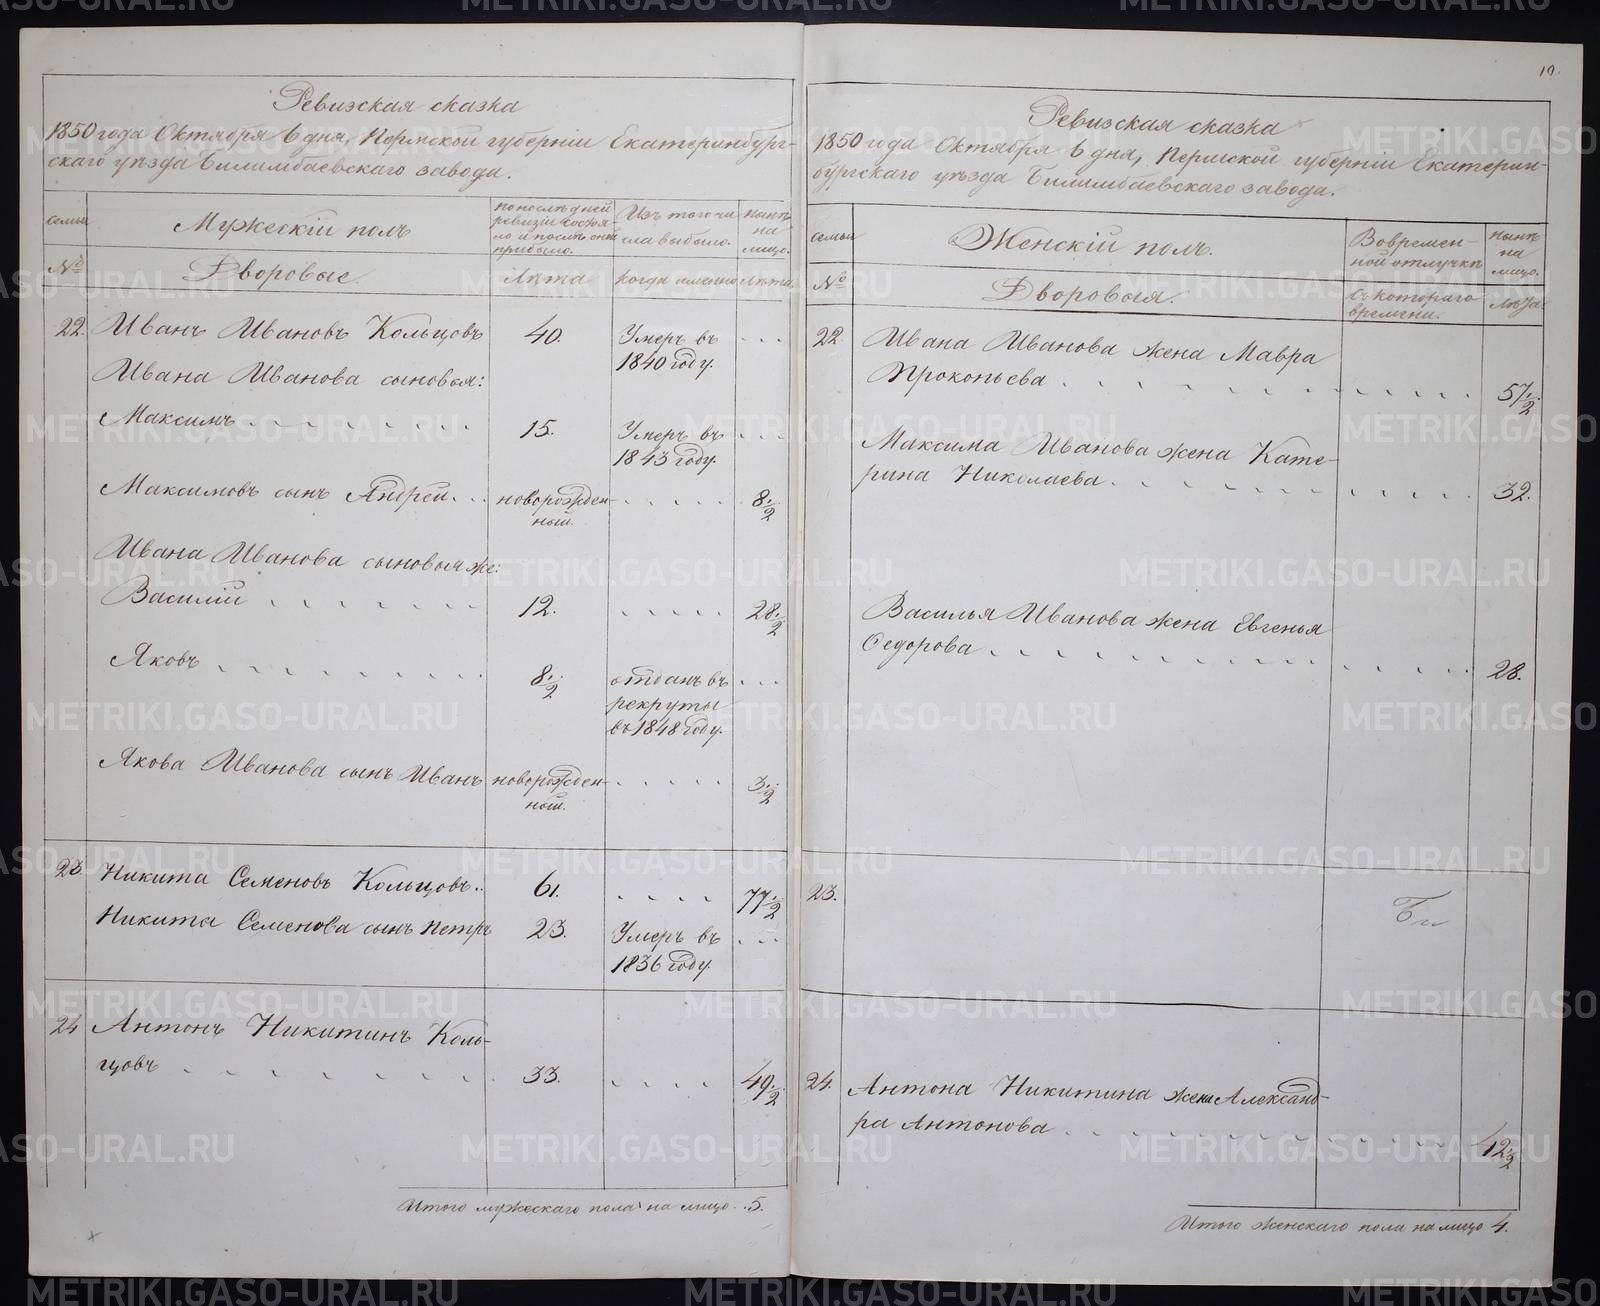 10.
Ревизская сказка
1850 года Октября 6 дня, Пермской губерніи Екатеринбург-
скаго уѣзда Билимбаевскаго завода.
семьи
Мужескій полъ
по послѣдней
ревизіи состоя-
ло и послѣ оной
прибыло.
Изъ того чи
сла выбыло.
нынѣ
на
лицо.
№
Дворовые.
Лѣта
когда именно
Лѣта.
22.
Иванъ Ивановъ Кольцовъ
40.
Умеръ въ
1840 году.
Ивана Иванова сыновья:
Максимъ
15.
Умеръ въ
1843 году.
Максимовъ сынъ Андрей
новорожден-
ный.
8 ½
Ивана Иванова сыновья же:
Василій
12.
28 ½
Яковъ
8 ½
отданъ въ
рекруты
въ 1848 году.
Якова Иванова сынъ Иванъ
новорожден-
ный.
3 ½
23
Никита Семеновъ Кольцовъ
61.
77 ½
Никита Семенова сынъ Петръ
23.
Умеръ въ
1836 году.
24
Антонъ Никитинъ Коль-
цовъ
33.
49 ½
Итого мужескаго пола на лицо 5.
Ревизская сказка
1850 года Октября 6 дня, Пермской губерніи Екатерин-
бургскаго уѣзда Билимбаевскаго завода.
семьи
Женскій полъ.
Во времен-
ной отлучкѣ
нынѣ
на
лицо.
№
Дворовыя.
съ котораго
времени.
Лѣта
22
Ивана Иванова жена Мавра
Прокопьева
57 ½
Максима Иванова жена Кате-
рина Николаева
32.
Василья Иванова жена Евгенья
Федорова
28.
23.
24.
Антона Никитина жена Александ-
ра Антонова
42 ½
Итого женскаго пола на лицо 4.
METRIKI.GASO-URAL.RU